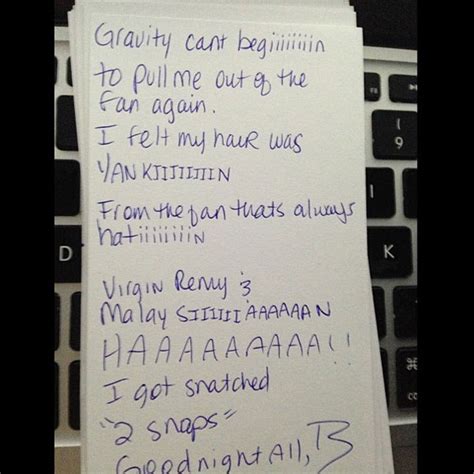 Gravity cant begiiiiiiiin
to pull me out of the
fan again.
I felt my hair was
YANKIIIIIIIIN
From the fan thats always
hatiiiiiiiiN
Virgin Remy &
Malay SIIIIIIAAAAAAN
HAAAAAAAAA!!
I got snatched
"2 snaps"
Goodnight All, B
D
K
(
9